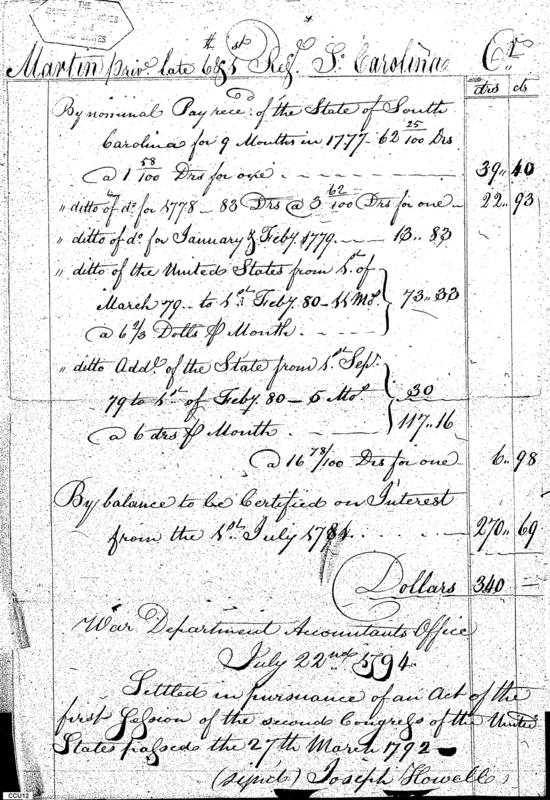 THE
STATES
Martin priv.e late 6th & 1st Reg.t So. Carolina Cr.
drs cts
By nominal Pay rec.d of the State of South
Carolina for 9 Months in 1777 - 62 25/100 Drs
@ 1 58/100 Drs for one 39.. 40
" ditto of do. for 1778 - 83 Drs @ 3 62/100 Drs for one 22.. 93
" ditto of do. for January & Feby. 1779 13.. 83
" ditto of the United States from 1st of
March 79 - to 1st Feby. 80 - 11 Mo.
@ 6 2/3 Dolls ⅌ Month 73.. 33
" ditto Addl. of the State from 1st Sep.
79 to 1st of Feby. 80 - 5 Mo. 30
@ 6 drs ⅌ Month 117.. 16
@ 16 78/100 Drs for one 6.. 98
By balance to be Certified on Interest
from the 1st July 1781 270.. 69
Dollars 340 —
War Department Accountants Office
July 22nd 1794.
Settled in pursuance of an Act of the
first Session of the second Congress of the United
States passed the 27th March 1792
(signed) Joseph Howell
CCU12